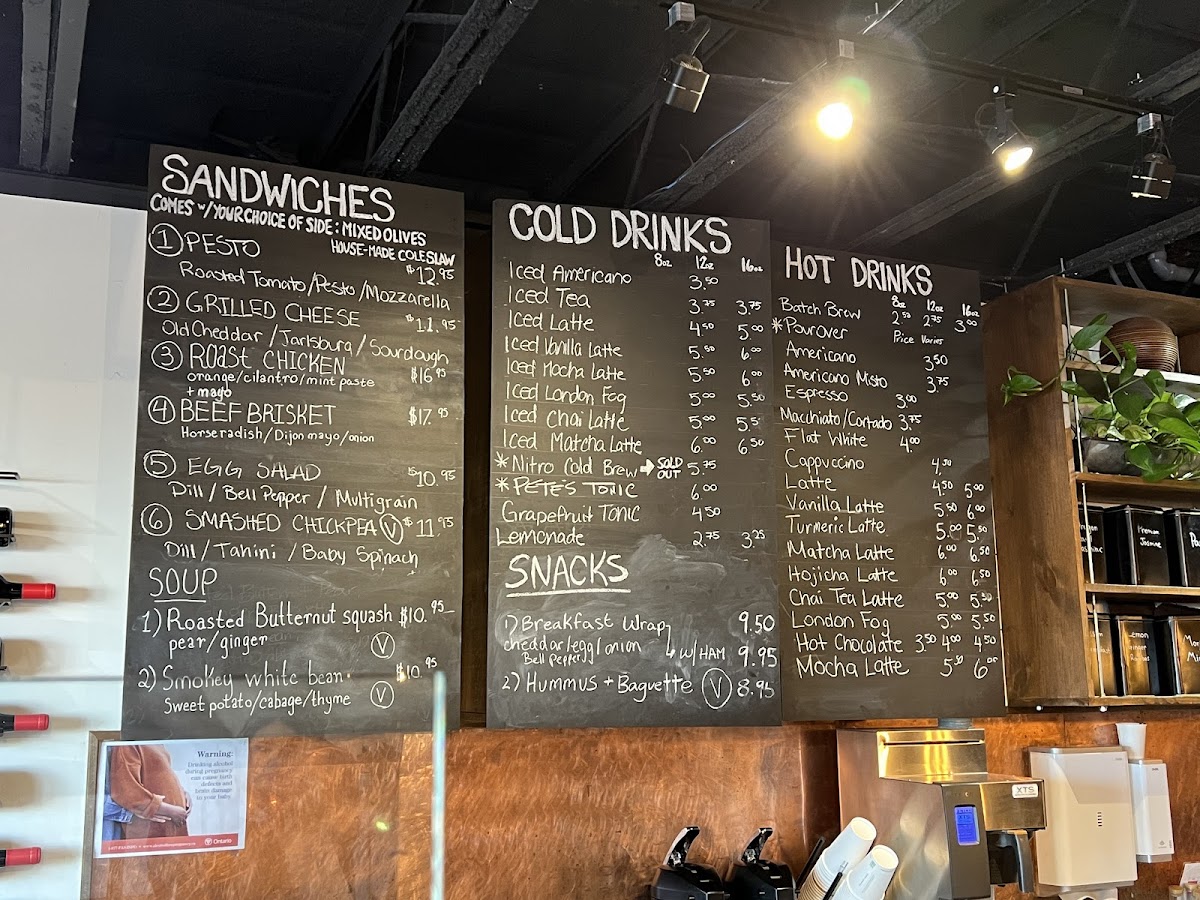 SANDWICHES
COMES w/ YOUR CHOICE OF SIDE: MIXED OLIVES
HOUSE-MADE COLESLAW
1 PESTO $12.95
Roasted Tomato/Pesto/Mozzarella
2 GRILLED CHEESE $11.95
Old Cheddar/Jarlsburg/Sourdough
3 ROAST CHICKEN $16.95
orange/cilantro/mint paste
+ mayo
4 BEEF BRISKET $17.95
Horseradish/Dijon mayo/onion
5 EGG SALAD $10.95
Dill/Bell Pepper/Multigrain
6 SMASHED CHICKPEA V $11.95
Dill/Tahini/Baby Spinach
SOUP
1) Roasted Butternut squash $10.95
pear/ginger V
2) Smokey white bean $10.95
Sweet potato/cabage/thyme V
COLD DRINKS
8oz 12oz 16oz
Iced Americano 3.50
Iced Tea 3.75 3.75
Iced Latte 4.50 5.00
Iced Vanilla Latte 5.50 6.00
Iced Mocha Latte 5.50 6.00
Iced London Fog 5.00 5.50
Iced Chai Latte 5.00 5.5
Iced Matcha Latte 6.00 6.50
*Nitro Cold Brew → SOLD OUT 5.75
*PETE'S TONIC 6.00
Grapefruit TONIC 4.50
Lemonade 2.75 3.25
SNACKS
1) Breakfast Wrap 9.50
cheddar/egg/onion
Bell Pepper ↳ W/HAM 9.95
2) Hummus + Baguette V 8.95
HOT DRINKS
8oz 12oz 16oz
Batch Brew 2.50 2.75 3.00
*Pourover Price Varies
Americano 3.50
Americano Misto 3.75
Espresso 3.00
Macchiato/Cortado 3.75
Flat White 4.00
Cappuccino 4.50
Latte 4.50 5.00
Vanilla Latte 5.50 6.00
Turmeric Latte 5.00 5.50
Matcha Latte 6.00 6.50
Hojicha Latte 6.00 6.50
Chai Tea Latte 5.00 5.50
London Fog 5.00 5.50
Hot Chocolate 3.50 4.00 4.50
Mocha Latte 5.50 6.00
Warning:
Drinking alcohol
during pregnancy
can cause birth
defects and
brain damage
to your baby.
Ontario
XTS
XTS
Jasmine
Lemon
Ginger